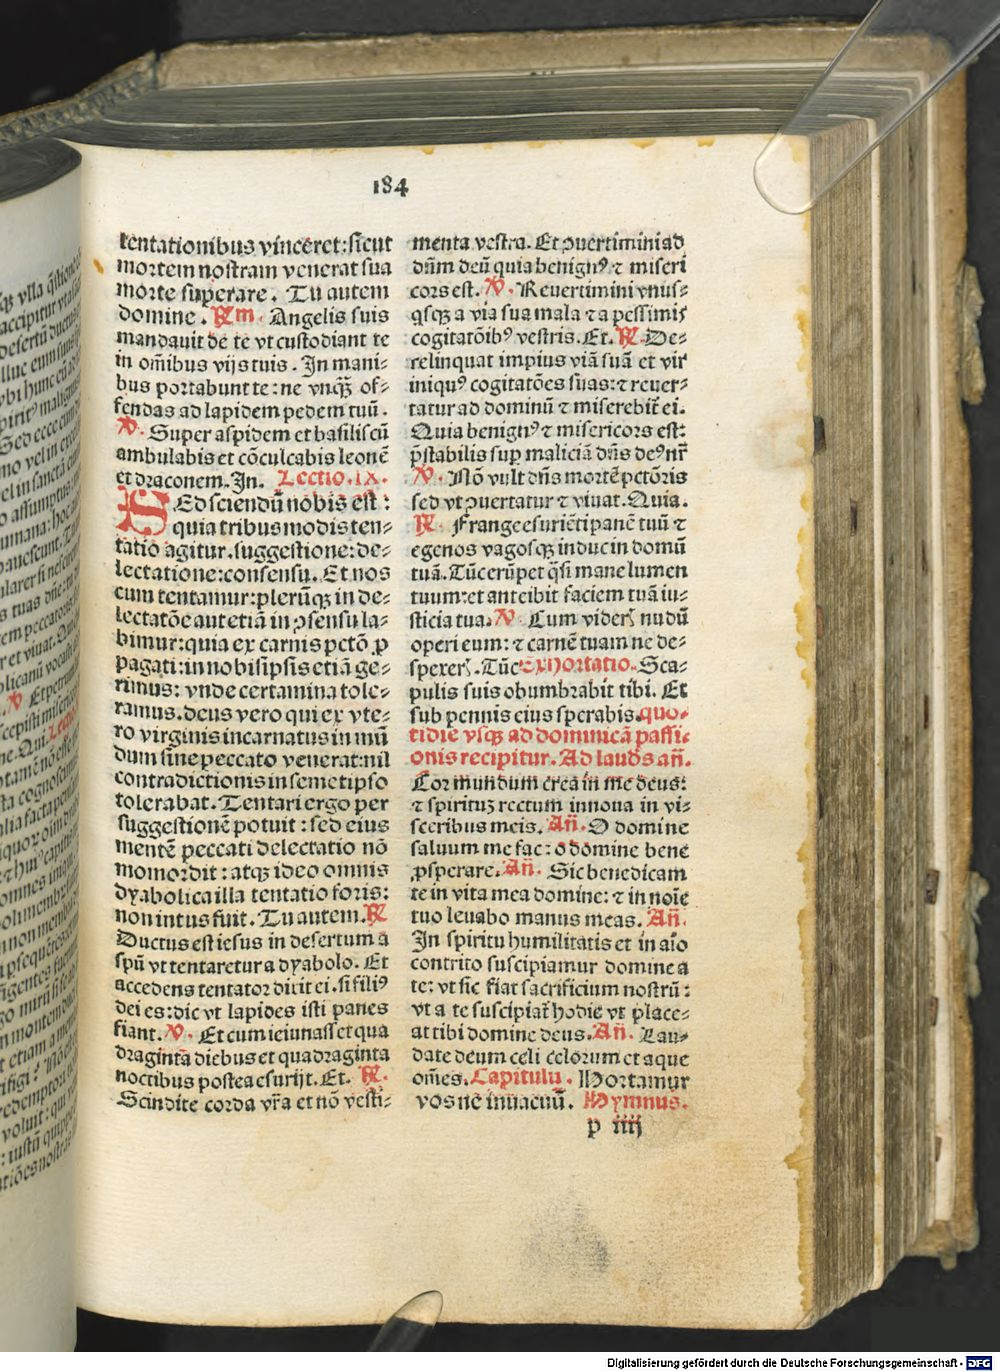 184
tentationibus vinceret: sicut
mortem nostram venerat sua
morte superare. Tu autem
domine. R̃m. Angelis suis
mandauit de te vt custodiant te
in om̃ibus vijs tuis. In mani-
bus portabunt te: ne vnq̃ȝ of-
fendas ad lapidem pedem tuũ.
V. Super aspidem et basiliscũ
ambulabis et cõculcabis leonẽ
et draconem. In. Lectio .IX.
SEd sciendũ nobis est:
quia tribus modis ten-
tatio agitur. suggestione: de-
lectatione: consensu. Et nos
cum tentamur: plerũqȝ in de-
lectatõe aut etiã in ꝯsensu la-
bimur: quia ex carnis pctõ ꝓ
pagati: in nobis ipsis etiã ge-
rimus: vnde certamina tole-
ramus. deus vero qui ex vte-
ro virginis incarnatus in mũ
dum sine peccato venerat: nil
contradictionis in semetipso
tolerabat. Tentari ergo per
suggestionẽ potuit: sed eius
mentẽ peccati delectatio nõ
momordit: atqȝ ideo omnis
dyabolica illa tentatio foris:
non intus fuit. Tu autem. R̃
Ductus est iesus in desertum a
spũ vt tentaretur a dyabolo. Et
accedens tentator dixit ei. si fili⁹
dei es: dic vt lapides isti panes
fiant. V. Et cum ieiunasset qua
dragintã diebus et quadraginta
noctibus postea esurijt. Et. R̃.
Scindite corda vr̃a et nõ vesti-
menta vestra. Et ꝯuertimini ad
dñm deũ quia benign⁹ ⁊ miseri
cors est. V. Reuertimini vnus-
qsqȝ a via sua mala ⁊ a pessimis
cogitatõib⁹ vestris. Et. R̃. De-
relinquat impius viã suã et vir
iniqu⁹ cogitatões suas: ⁊ reuer-
tatur ad dominũ ⁊ miserebit̃ ei.
Quia benign⁹ ⁊ misericors est:
p̃stabilis suꝑ maliciã dñs de⁹ nr̃
V. Nõ vult dñs mortẽ pctõris
sed vt ꝯuertatur ⁊ viuat. Quia.
R̃. Frange esuriẽti panẽ tuũ ⁊
egenos vagosqȝ induc in domũ
tuã. Tũc erũpet q̃si mane lumen
tuum: et anteibit faciem tuã iu-
sticia tua. V. Cum viderꝭ nudũ
operi eum: ⁊ carnẽ tuam ne de-
spexerꝭ. Tũc Exhortatio. Sca-
pulis suis obumbrabit tibi. Et
sub pennis eius sperabis. quo-
tidie vsqȝ ad dominicã passi-
onis recipitur. Ad lauds añ.
Cor mundum crea in me deus:
⁊ spirituȝ rectum innoua in vi-
sceribus meis. Añ. O domine
saluum me fac: o domine bene
ꝓsperare. Añ. Sic benedicam
te in vita mea domine: ⁊ in noĩe
tuo leuabo manus meas. Añ.
In spiritu humilitatis et in aĩo
contrito suscipiamur domine a
te: vt sic fiat sacrificium nostrũ:
vt a te suscipiat̃ hodie vt place-
at tibi domine deus. Añ. Lau-
date deum celi celorum et aque
om̃es. Capitulũ. Hortamur
vos ne in vacuũ. Hymnus.
p iiij
Digitalisierung gefördert durch die Deutsche Forschungsgemeinschaft - DFG